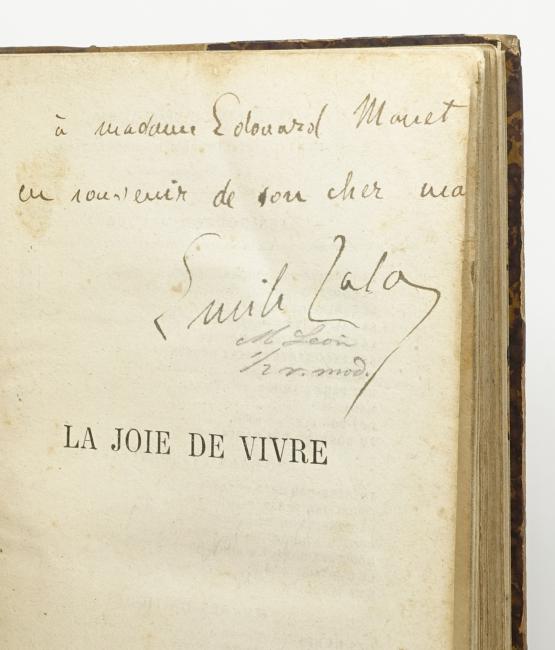 à madame Edouard Manet
en souvenir de son cher ma
Emile Zola
M Léon
1/2 v. mod.
LA JOIE DE VIVRE